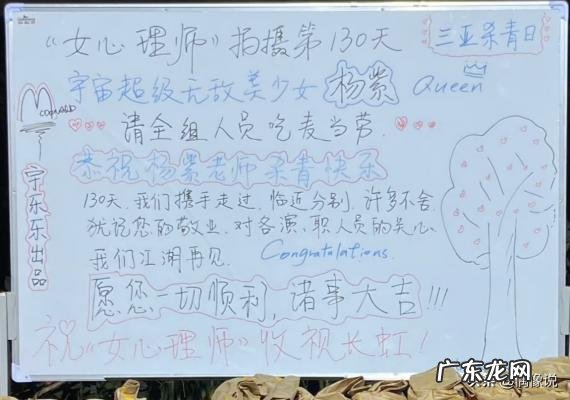 《女心理师》拍摄第130天
三亚杀青日
宇宙超级无敌美少女 杨紫 Queen
请全组人员吃麦当劳.
恭祝杨紫老师杀青快乐
130天,我们携手走过,临近分别,许多不舍
犹记您的敬业、对各演、职人员的关心、
我们江湖再见. Congratulations.
愿您一切顺利,诸事大吉!!!
祝《女心理师》收视长虹!
宁东东出品
广东龙网